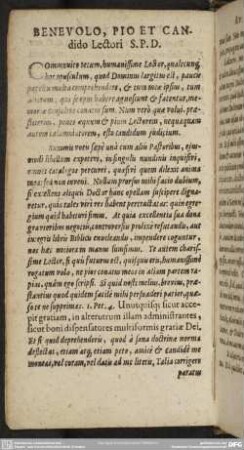 BENEVOLO, PIO ET CAN-
dido Lectori S.P.D.
Communico tecum, humanissime Lector, qualecunq́;
hoc opusculum, quod Dominus largitus est, paucis
multa comprehendere, & cum meæ ipsius, tum
habere agnoscunt & fatentur, me-
conatus sum. Num verò quæ volui, præ-
stiterim, penes æquum & pium Lectorem, nequaquam
autem calumniatorem, esto candidum judicium.
unà cum aliis Pastoribus,
modi libellum expetere, in singulis nundinis inquisivi,
catalogos percurri, quasivi quem delicium anima
invenit. Nullum prorsus mihi facio dubium,
si excellens aliquis Doctor hanc spellam suscipere digna-
retur, quin tales viri res habent pertractatas: quin egre-
gium quid habituri simus. At quia excellentia sua dona
gravioribus negotiis, controversiis profecto refutandis, aut
exegesi libris Biblicis enucleandis, impendere coguntur,
nos hæc minora in manus sumsimus. Te autem charis-
sime Lector, si qui futurus est, quisquis eris, humanissimè
rogatum volo, ne pios conatus meos in aliam partem rapias,
quàm ego scripsi. Si quid nosti melius, brevius, præ-
stantius quod quidem facilè mihi persuaderi patiar, quæ-
so te ne supprimas. 1. Pet. 4. Unusquisq; sicut acce-
pit gratiam, in alterutrum illam administrantes,
sicut boni dispensatores multiformis gratiæ Dei.
Et si quid deprehenderis, quod à sana doctrina norma
deflectat, etiam atq́; etiam peto, amicè & candidè me
moneas, vel coram, vel datis ad me literis, Talia corrigere
paratus